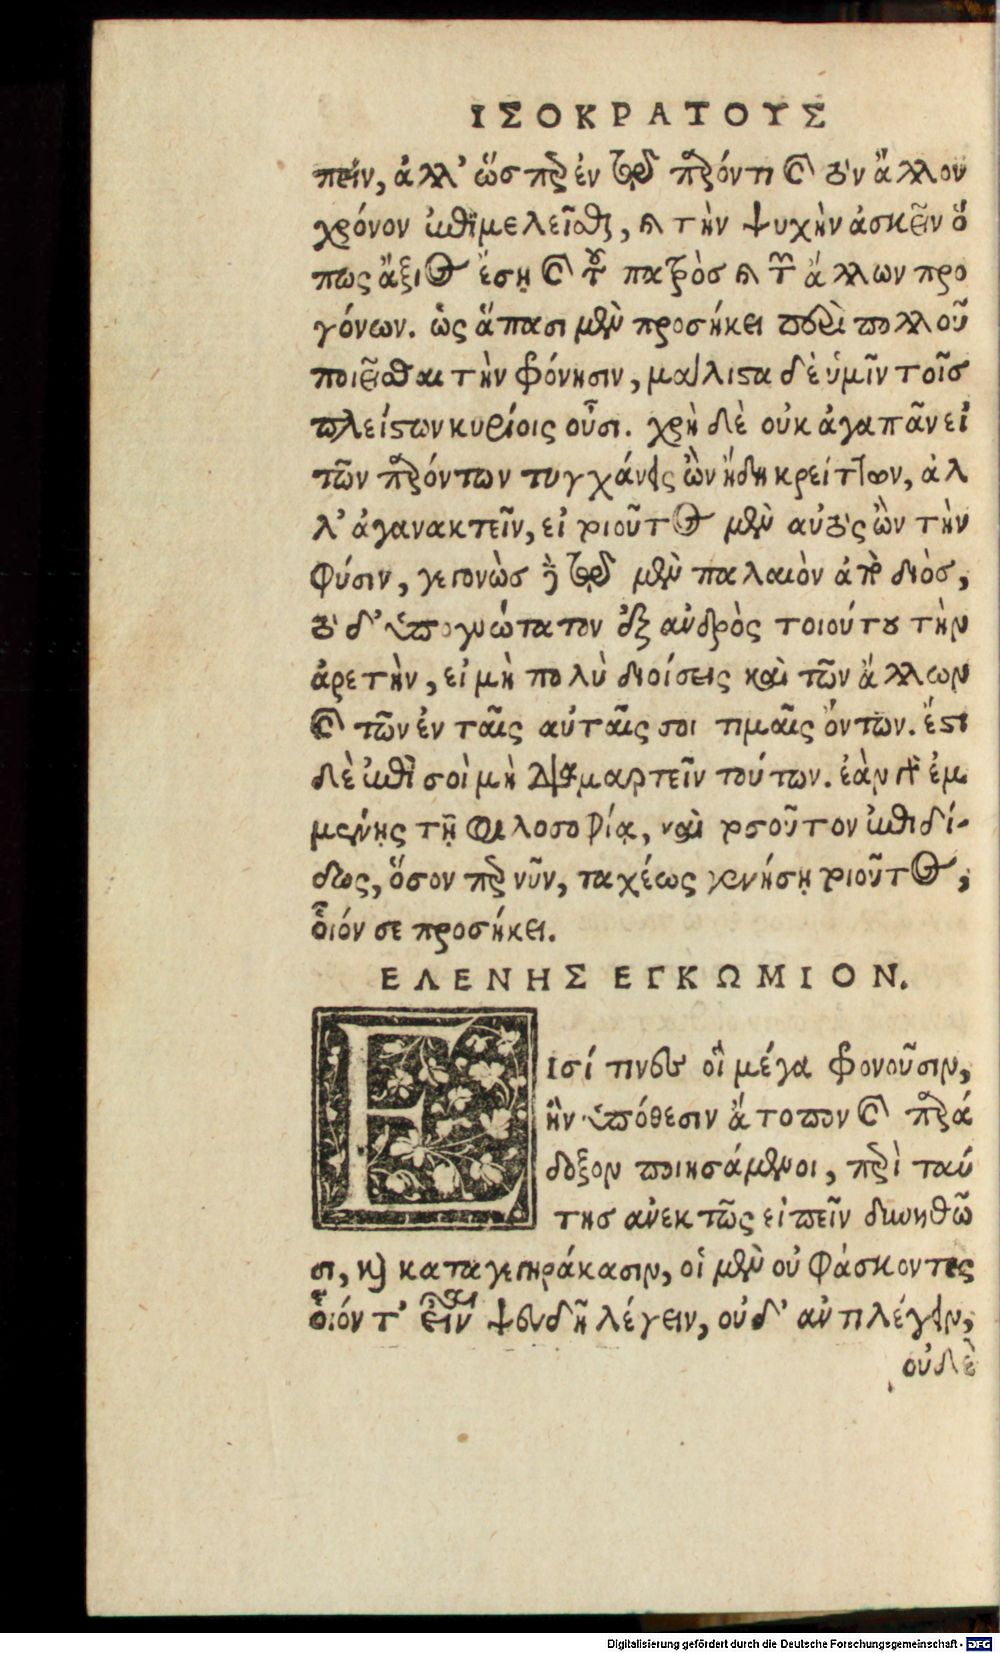 ΙΣΟΚΡΑΤΟΥΣ
πεῖν, ἀλλ’ ὥσπερ ἐν τῷ παρόντι καὶ τὸν ἄλλον
χρόνον ἐπιμελεῖσθαι, καὶ τὴν ψυχὴν ἀσκεῖν ὅ
πως ἄξιος ἔσῃ καὶ τοῦ πατρὸς καὶ τῶν ἄλλων προ
γόνων. ὡς ἅπασι μὲν προσήκει περὶ πολλοῦ
ποιεῖσθαι τὴν φρόνησιν, μάλιστα δὲ ὑμῖν τοῖς
πλείστων κυρίοις οὖσι. χρὴ δὲ οὐκ ἀγαπᾶν εἰ
τῶν παρόντων τυγχάνεις ὢν ἤδη κρείττων, ἀλ
λ’ ἀγανακτεῖν, εἰ τοιοῦτος μὲν αὐτὸς ὢν τὴν
φύσιν, γεγονὼς δὲ τὸ μὲν παλαιὸν ἀπὸ διὸς,
τὸ δ’ ὑπογυώτατον ἐξ ἀνδρὸς τοιούτου τὴν
ἀρετὴν, εἰ μὴ πολὺ διοίσεις καὶ τῶν ἄλλων
καὶ τῶν ἐν ταῖς αὐταῖς σοι τιμαῖς ὄντων. ἔστι
δὲ ἐπὶ σοὶ μὴ διαμαρτεῖν τούτων. ἐὰν γὰρ ἐμ
μείνῃς τῇ φιλοσοφίᾳ, καὶ τοσοῦτον ἐπιδί-
δως, ὅσον περ νῦν, ταχέως γενήσῃ τοιοῦτος,
οἷόν σε προσήκει.
ΕΛΕΝΗΣ ΕΓΚΩΜΙΟΝ.
Εἰσί τινες οἳ μέγα φρονοῦσιν,
ἢν ὑπόθεσιν ἄτοπον καὶ παρά
δοξον ποιησάμενοι, περὶ ταύ
της ἀνεκτῶς εἰπεῖν δυνηθῶ
σι, καὶ καταγεγηράκασιν, οἱ μὲν οὐ φάσκοντες
οἷόν τ’ εἶναι ψευδῆ λέγειν, οὐδ’ ἀντιλέγειν,
οὐδὲ
Digitalisierung gefördert durch die Deutsche Forschungsgemeinschaft - DFG